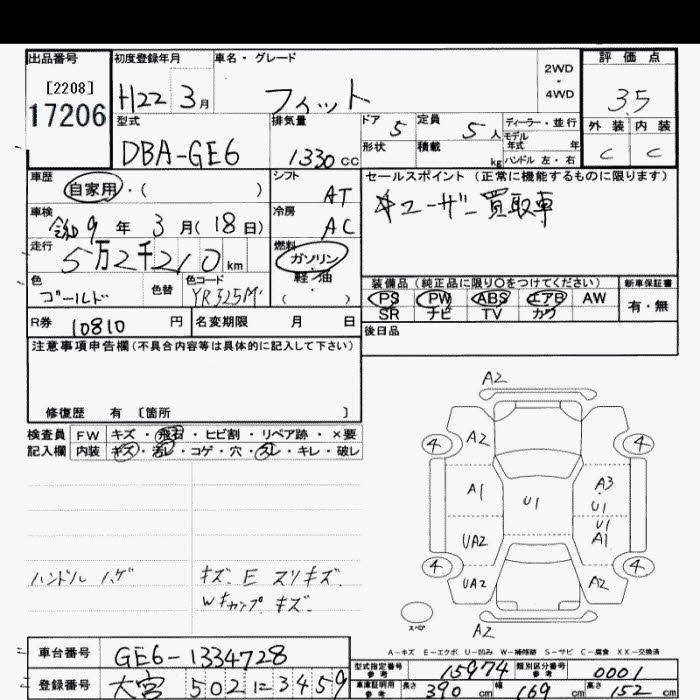 出品番号 初度登録年月 車名・グレード 2WD・4WD 評価点
[2208]
17206
H22 3月 フィット 3.5
型式 排気量 ドア 定員 ディーラー・並行 外装 内装
DBA-GE6 1330cc 5 5人 モデル年式 年 C C
形状 積載 kg ハンドル 左・右
車歴 シフト セールスポイント(正常に機能するものに限ります)
自家用・( ) AT
ユーザー買取車
車検 冷房
令和9年 3月(18日) AC
走行 燃料
5万2千210km ガソリン・軽・油
( )
色 色替 色コード 装備品(純正品に限り○をつけてください) 新車保証書
ゴールド YR325M PS PW ABS エアB AW 有・無
SR ナビ TV カワ
R券 10810円 名変期限 月 日 後日品
注意事項申告欄(不具合内容等は具体的に記入して下さい)
修復歴 有 [箇所 ]
検査員 FW キズ・飛石・ヒビ割・リペア跡・×要
記入欄 内装 キズ・汚レ・コゲ・穴・スレ・キレ・破レ
A2
4 A2 4
A1 U1 A3
U1
U1
UA2 A1
4 4
UA2 A2
スペア
A2
ハンドル ハゲ キズ.E スリキズ.
Wキャップ キズ.
A-キズ E-エクボ U-凹み W-補修跡 S-サビ C-腐食 XX-交換済
車台番号 GE6-1334728
型式指定番号 参考 15974 類別区分番号 参考 0001
登録番号 大宮 502に3459
車庫証明用 参考 長さ 390cm 幅 169cm 高さ 152cm